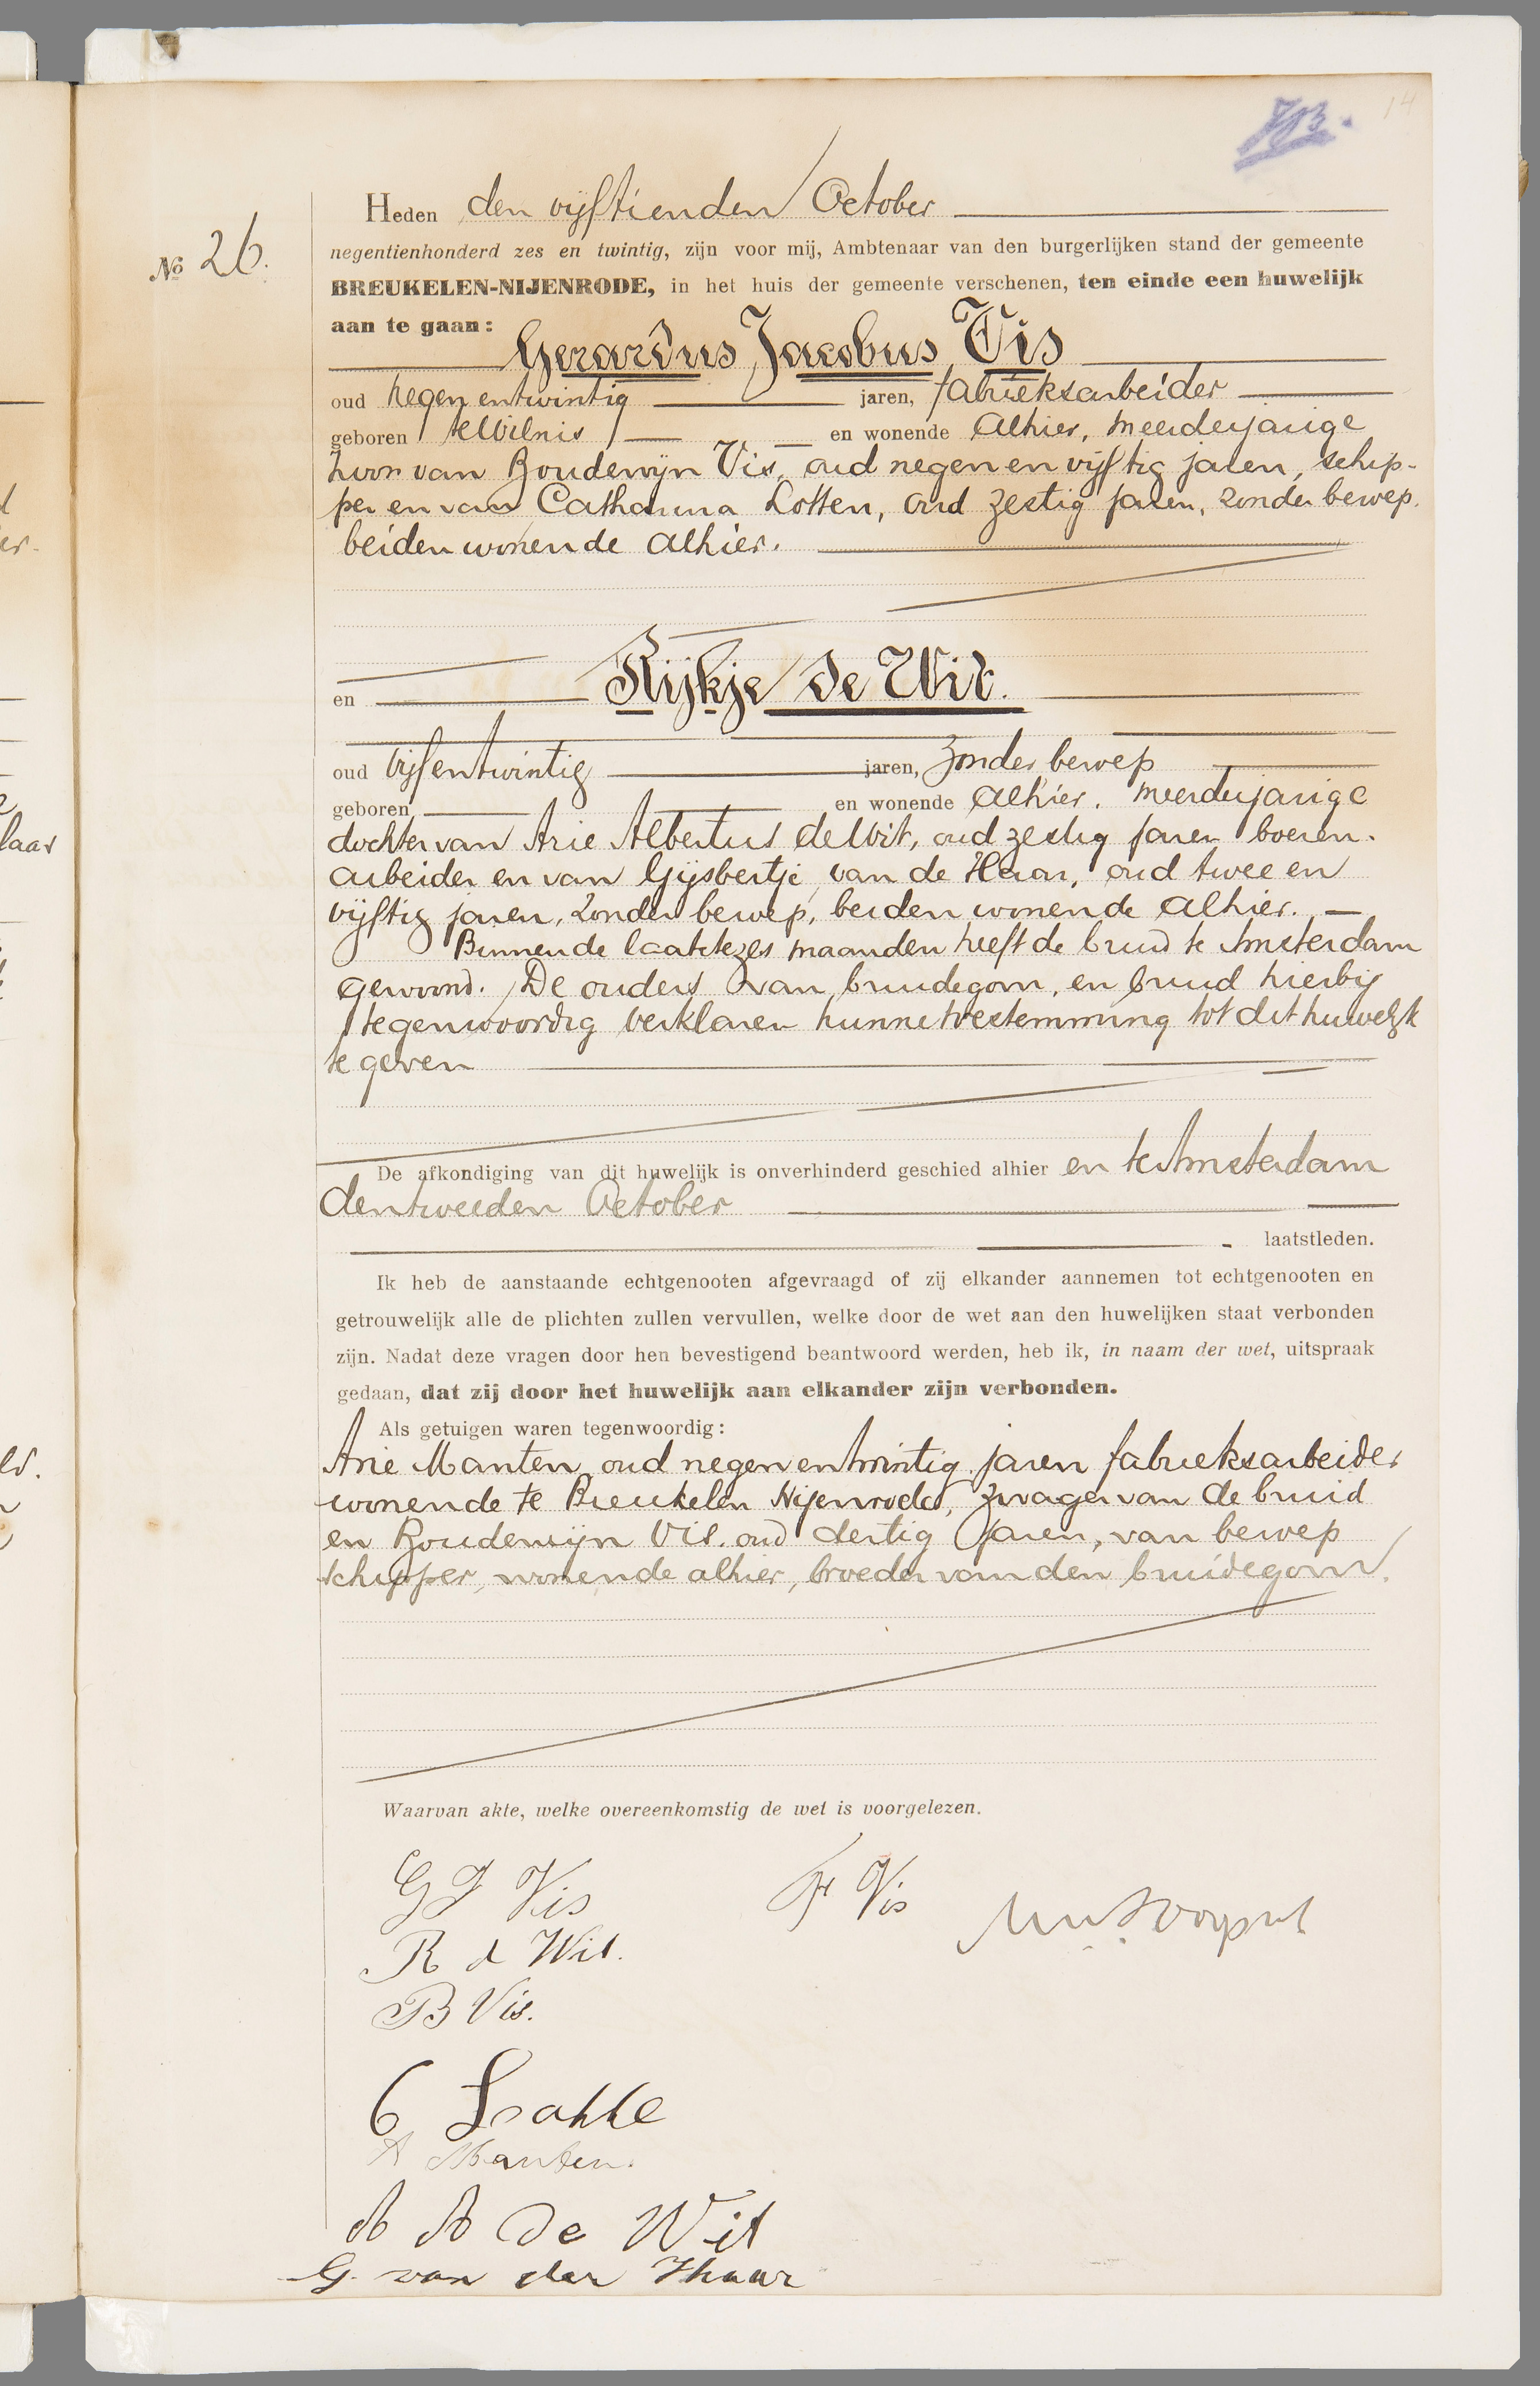 14
703.
Heden den vijftienden October
No 26.
negentienhonderd zes en twintig, zijn voor mij, Ambtenaar van den burgerlijken stand der gemeente
BREUKELEN-NIJENRODE, in het huis der gemeente verschenen, ten einde een huwelijk
aan te gaan:
Gerardus Jacobus Vis
oud negen en twintig jaren, fabrieksarbeider
geboren te Wilnis en wonende alhier, meerderjarige
zoon van Boudewijn Vis, oud negen en vijftig jaren, schip-
per en van Catharina Lotten, oud zestig jaren, zonder beroep.
beiden wonende alhier.
en Rijkje de Wit.
oud vijf en twintig jaren, zonder beroep
geboren en wonende alhier, meerderjarige
dochter van Arie Albertus de Wit, oud zestig jaren boeren-
arbeider en van Gijsbertje van de Haar, oud twee en
vijftig jaren, zonder beroep, beiden wonende alhier.
Binnen de laatste zes maanden heeft de bruid te Amsterdam
gewoond. De ouders van bruidegom en bruid hierbij
tegenwoordig verklaren hunne toestemming tot dit huwelijk
te geven
De afkondiging van dit huwelijk is onverhinderd geschied alhier en te Amsterdam
den tweeden October
laatstleden.
Ik heb de aanstaande echtgenooten afgevraagd of zij elkander aannemen tot echtgenooten en
getrouwelijk alle de plichten zullen vervullen, welke door de wet aan den huwelijken staat verbonden
zijn. Nadat deze vragen door hen bevestigend beantwoord werden, heb ik, in naam der wet, uitspraak
gedaan, dat zij door het huwelijk aan elkander zijn verbonden.
Als getuigen waren tegenwoordig:
Arie Manten oud negen en twintig jaren fabrieksarbeider
wonende te Breukelen Nijenrode, zwager van de bruid
en Boudewijn Vis. oud dertig jaren, van beroep
schipper, wonende alhier, broeder van den bruidegom.
Waarvan akte, welke overeenkomstig de wet is voorgelezen.
G J Vis
F Vis
R d Wit.
B Vis.
C Lotte
A Manten.
A A de Wit
G. van der Haar